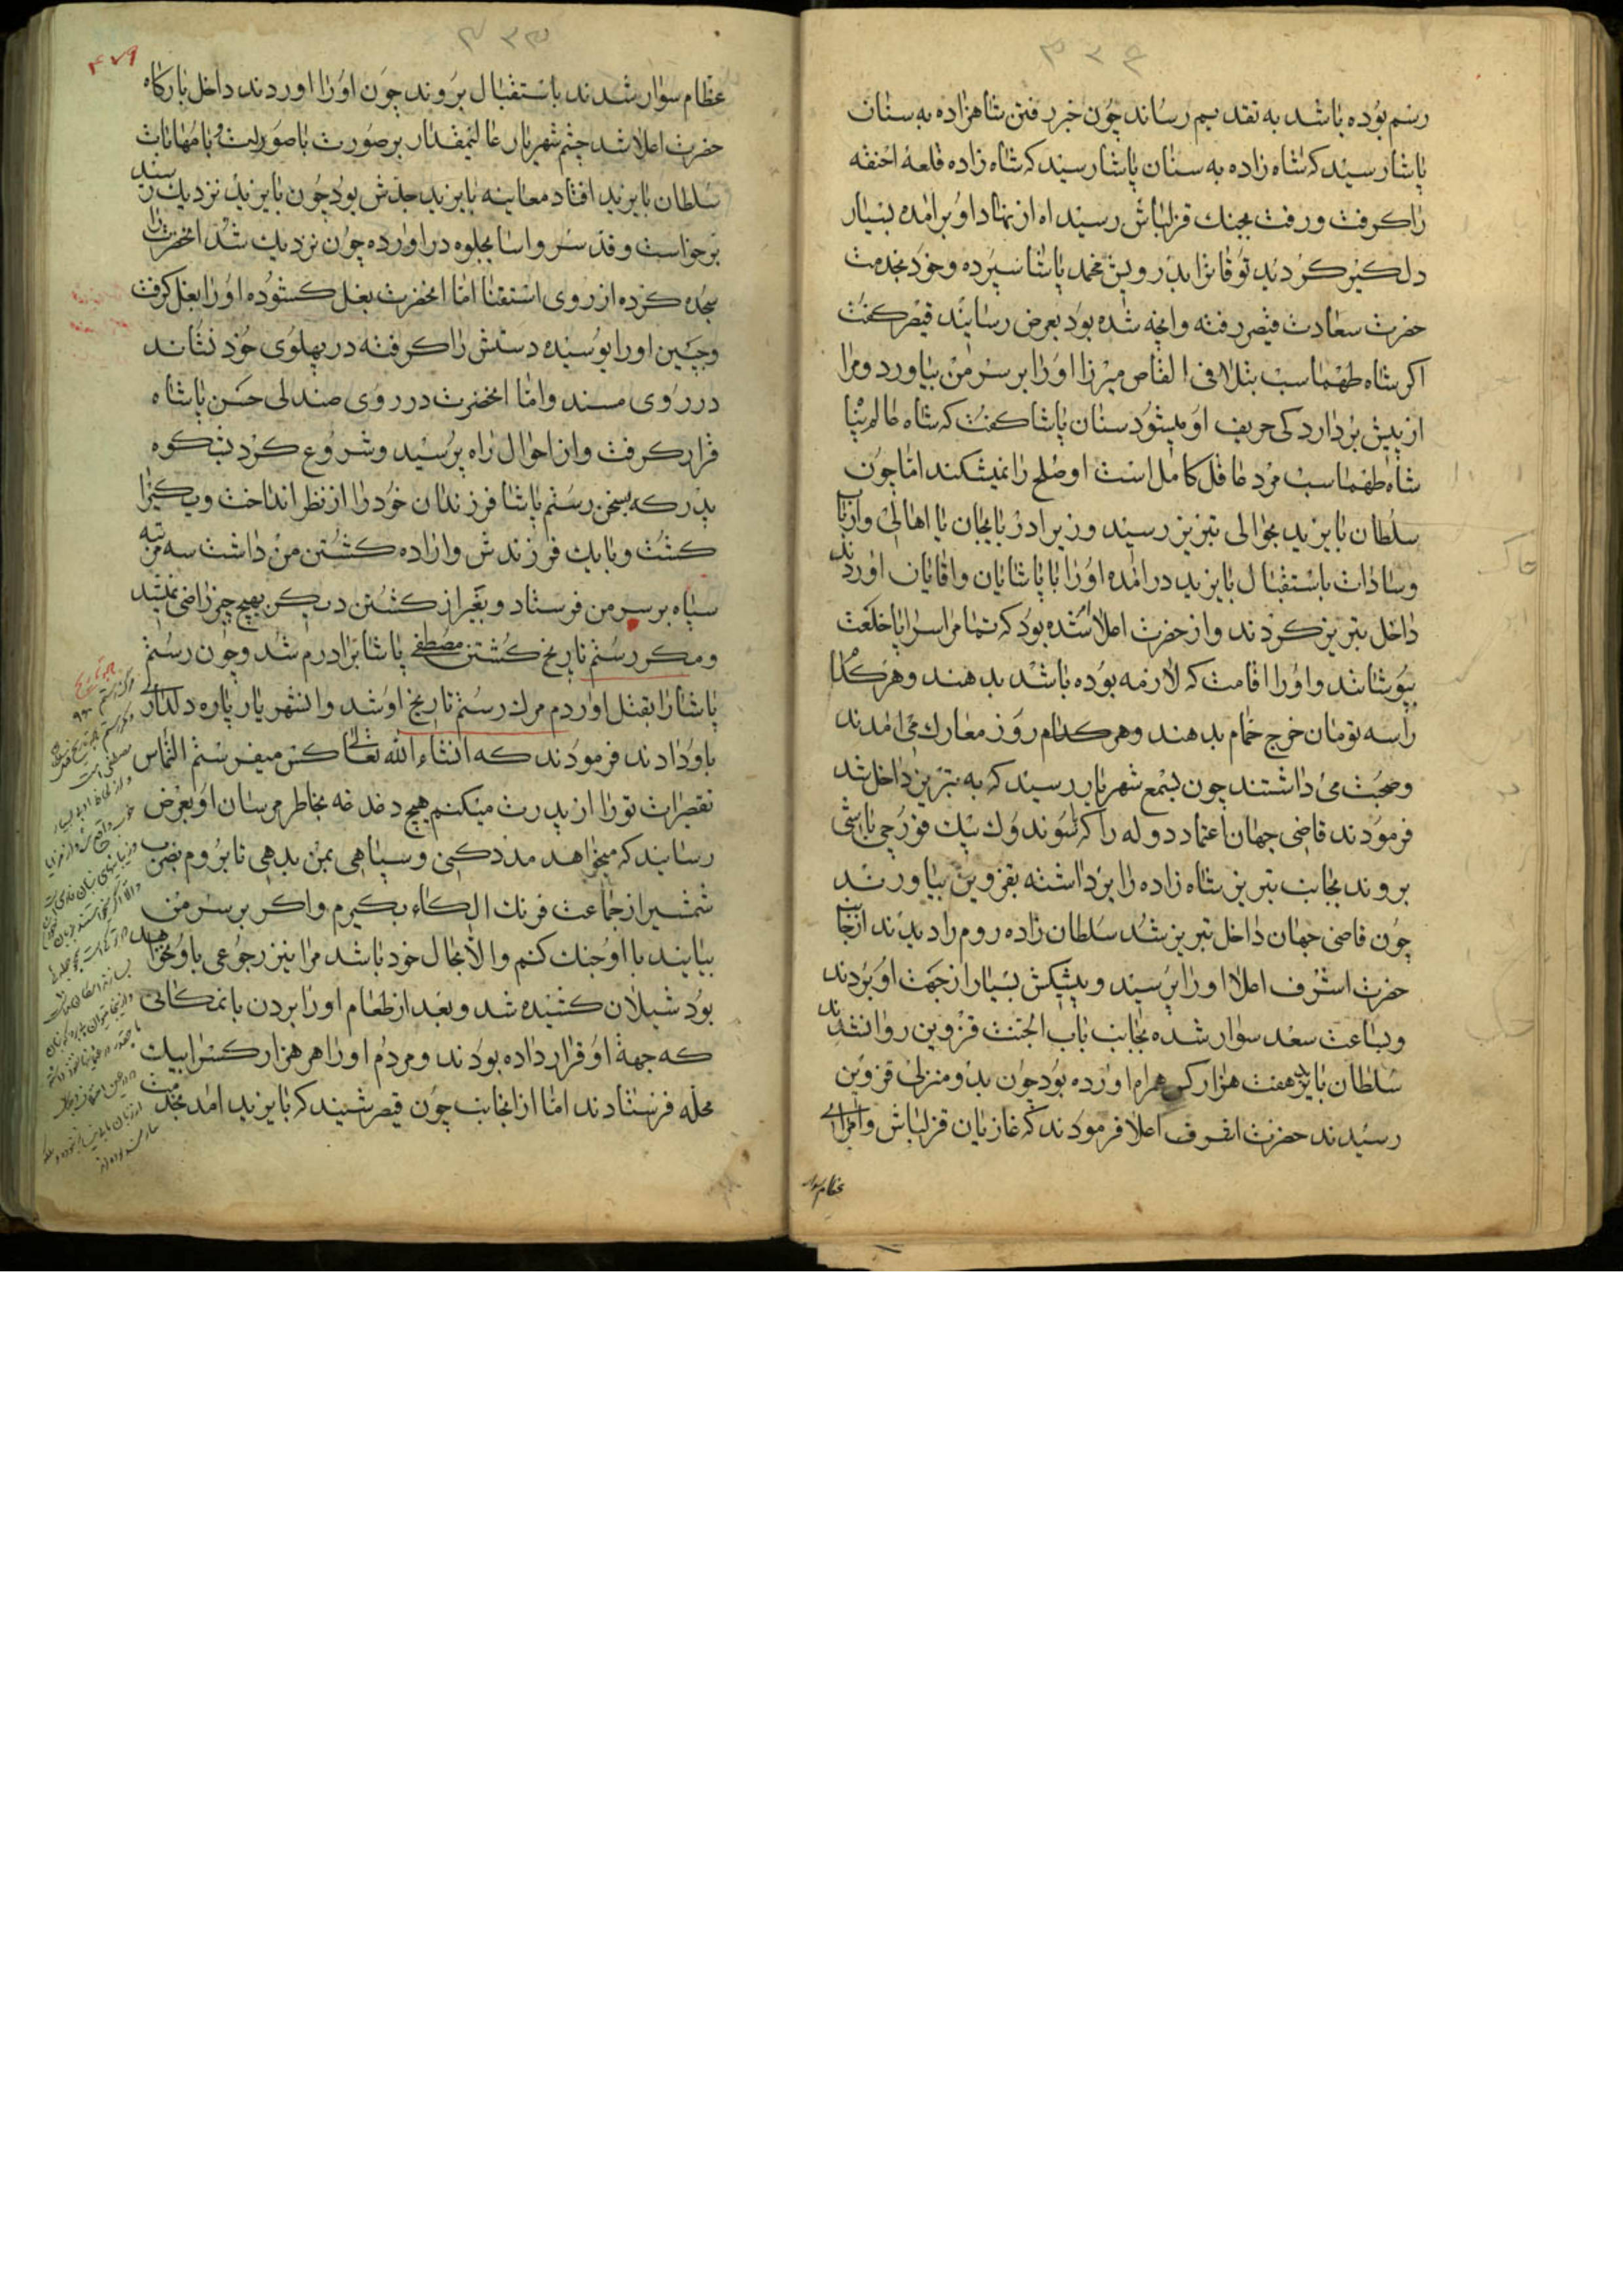 ۳۳۴
رسم بوده باشد به تقدیم رساند چون خبر رفتن شاهزاده به سنان
پاشا رسید که شاه زاده به سنان پاشا رسید که شاه زاده قلعهٔ اخنقه
را گرفت و رفت بجنگ قزلباش رسید اه از نهاد او برامده بسیار
دلگیر گردید توقاترا بدرویش محمد پاشا سپرده و خود بخدمت
حضرت سعادت قیصر رفته وانچه شده بود بعرض رسانید قیصر گفت
اگر شاه طهماسب بتلافی القاص میرزا اورا بر سر من بیاورد و مرا
از پیش بردارد کی حریف او میشود سنان پاشا گفت که شاه عالم پناه
شاه طهماسب مرد عاقل کامل است او صلح را نمیشکند اما چون
سلطان بایزید بحوالی تبریز رسید وزیر ادربایجان با اهالی وارباب
وسادات باستقبال بایزید درامده اورا با پاشایان واقایان اوردند
داخل تبریز کردند واز حضرت اعلا شده بود که تمام را سراپا خلعت
بپوشانند واورا اقامت که لازمه بوده باشد بدهند وهر کدام
را سه تومان خرج حمام بدهند وهر کدام روز معارک می امدند
وصحبت می داشتند چون بسمع شهریار رسید که به تبریز داخل شد
فرمودند قاضی جهان اعتماد دوله را که سوندوک بیک قورچی باشی
بروند بجانب تبریز شاه زاده را برداشته بقزوین بیاورند
چون قاضی جهان داخل تبریز شد سلطان زاده روم را دیدند از جانب
حضرت اشرف اعلا اورا پرسید وپیشکش بسیار از جهت او بردند
وبساعت سعد سوار شده بجانب باب الجنت قزوین روانشدند
سلطان بایزید هفت هزار کس همراه اورده بود چون بدو منزلی قزوین
رسیدند حضرت اشرف اعلا فرمودند که غازیان قزلباش وامرای
عظام سوار
۳۳۵
۴۷۹
عظام سوار شدند باستقبال بروند چون اورا اوردند داخل بارگاه
حضرت اعلا شد چشم شهریار عالیمقدار بر صورت با صورات و با مهابات
سلطان بایزید افتاد معاینه بایزید جدش بود چون بایزید نزدیک رسید
برخواست وقد سرو اسا بجلوه دراورده چون نزدیک شد انحضرت را
سجده کرده از روی استغنا اما انحضرت بغل گشوده اورا بغل گرفت
وجبین اورا بوسیده دستش را گرفته در پهلوی خود نشاند
در روی مسند واما انحضرت در روی صندلی حسن پاشاه
قرار گرفت واز احوال راه پرسید وشروع کرد بشکوه
پدر که بسخن رستم پاشا فرزندان خود را از نظر انداخت ویکیرا
کشت وبا یک فرزندش واراده کشتن من داشت سه مرتبه
سپاه بر سر من فرستاد وبغیر از کشتن دیگر بهیچ چیز راضی نمیشد
ومکر رستم تاریخ کشتن مصطفی پاشا برادرم شد وچون رستم
پاشا را بقتل اوردم مرک رستم تاریخ او شد وانشهریار پاره دلداری
باو دادند فرمودند که انشاء الله تعالی کس میفرستم التماس
تقصیرات تورا از پدرت میکنم هیچ دغدغه بخاطر مرسان او بعرض
رسانید که میخواهد مدد کنی وسپاهی بمن بدهی تا بروم بضرب
شمشیر از جماعت فرنک الکاء بگیرم واگر بر سر من
بیایند با او جنک کنم والا بحال خود باشد مرا نیز رجوعی باو نخواهد
بود شیلان کشیده شد وبعد از طعام اورا بردن بانمکانی
که جهة او قرار داده بودند ومردم اورا هر هزار کس را بیک
محله فرستادند اما از انجانب چون قیصر شنید که بایزید امد بخدمت